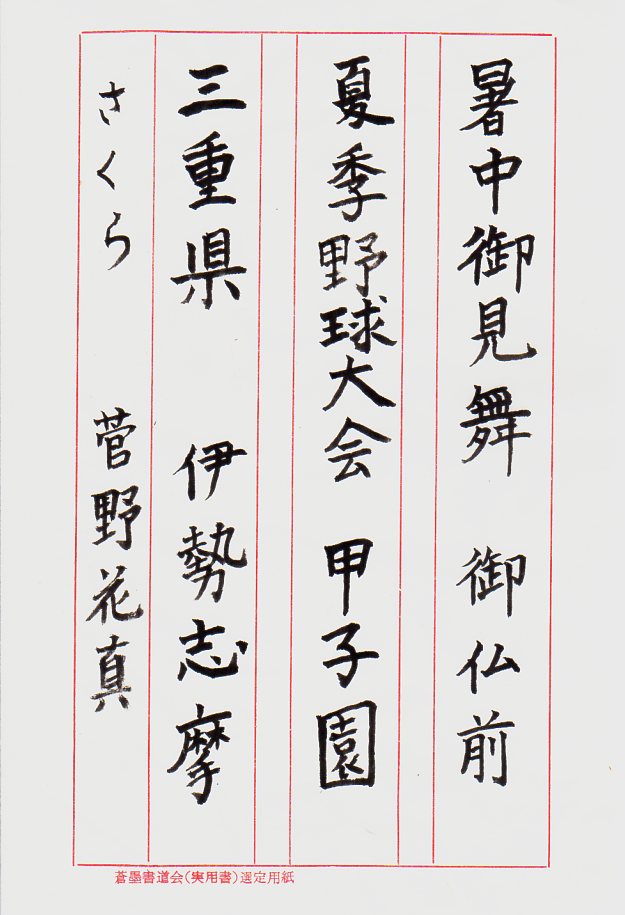 暑中御見舞　御仏前
夏季野球大会　甲子園
三重県　伊勢志摩
さくら　菅野花真
蒼墨書道会(実用書)選定用紙